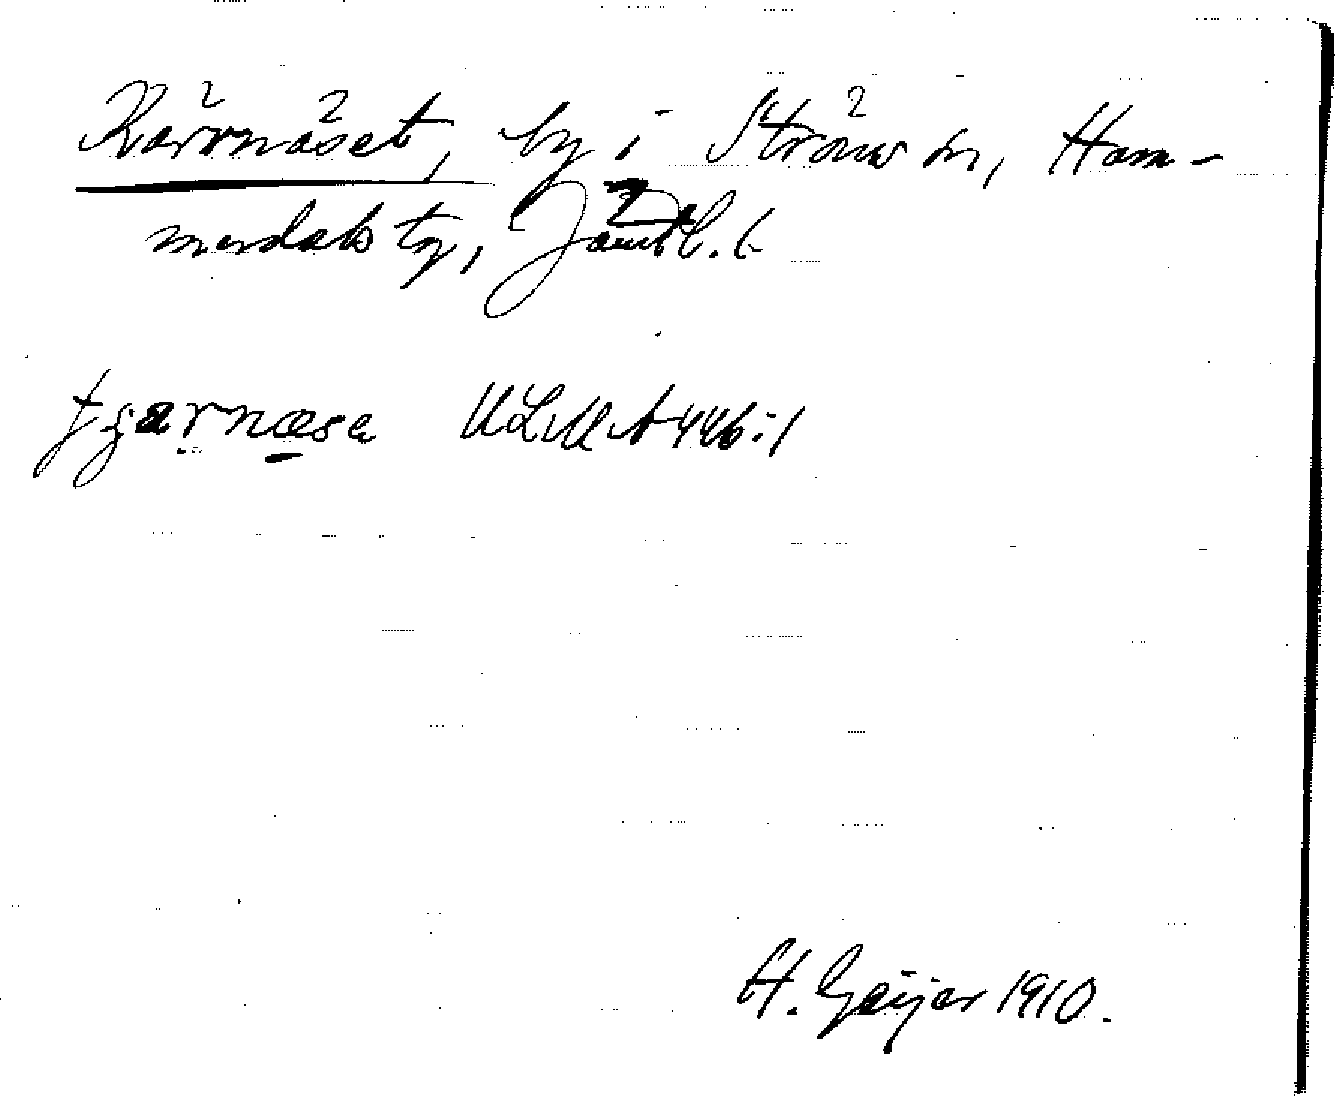 Kärrnäset, by i Ströms sn, Ham-
merdals tg, Jämtl. l.
ULMA 446:1
H. Geijer 1910.